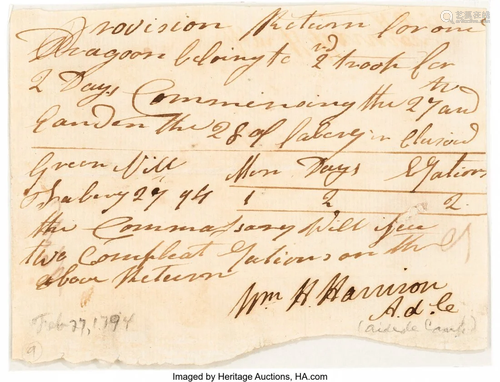 Provision Return for one
Dragoon belong to 2nd troop for
2 Days Commencing the 27 and
Eand on the 28 of
Green Vill Men Days Rations
27 94 1 2 2
the Commassary Will
two Compleat Rations on the
above Return
Wm H. Harrison
A.d.C
Feb 27, 1794 (aide de Camp)
Imaged by Heritage Auctions, HA.com